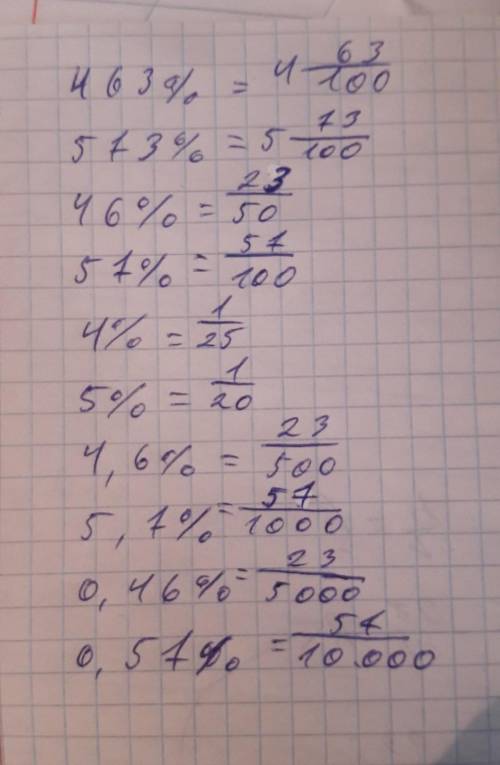 463% = 4 63/100
573% = 5 73/100
46% = 23/50
57% = 57/100
4% = 1/25
5% = 1/20
4,6% = 23/500
5,7% = 57/1000
0,46% = 23/5000
0,57% = 57/10.000